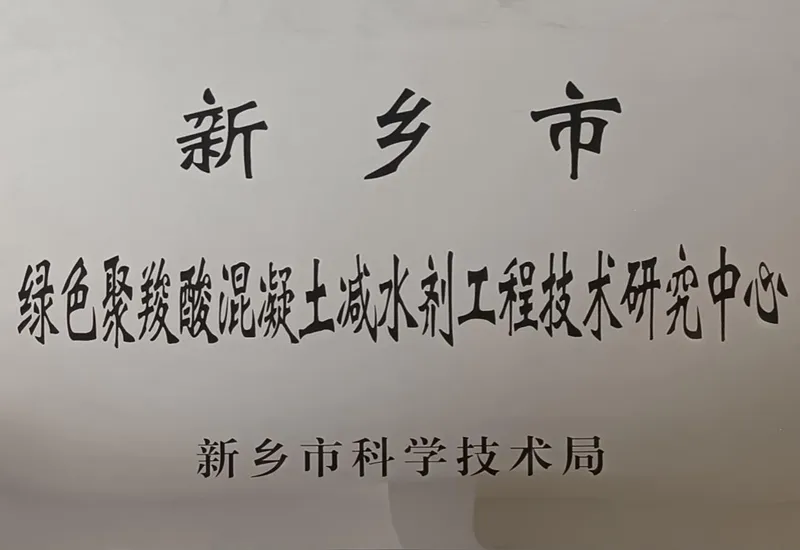 新乡市
绿色聚羧酸混凝土减水剂工程技术研究中心
新乡市科学技术局